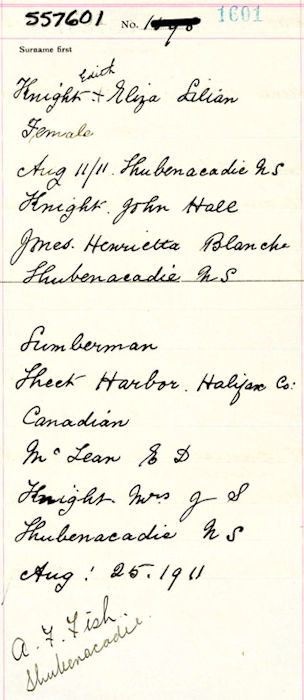 557601 No. 1601
Surname first
Edith
Knight + Eliza Lilian
Female
Aug 11/11. Shubenacadie NS
Knight. John Hall
Jmes. Henrietta Blanche
Shubenacadie NS
Lumberman
Sheet Harbor. Halifax Co:
Canadian
Mc Lean E D
Knight Mrs J S
Shubenacadie NS
Aug: 25. 1911
A. F. Fish.
Shubenacadie.